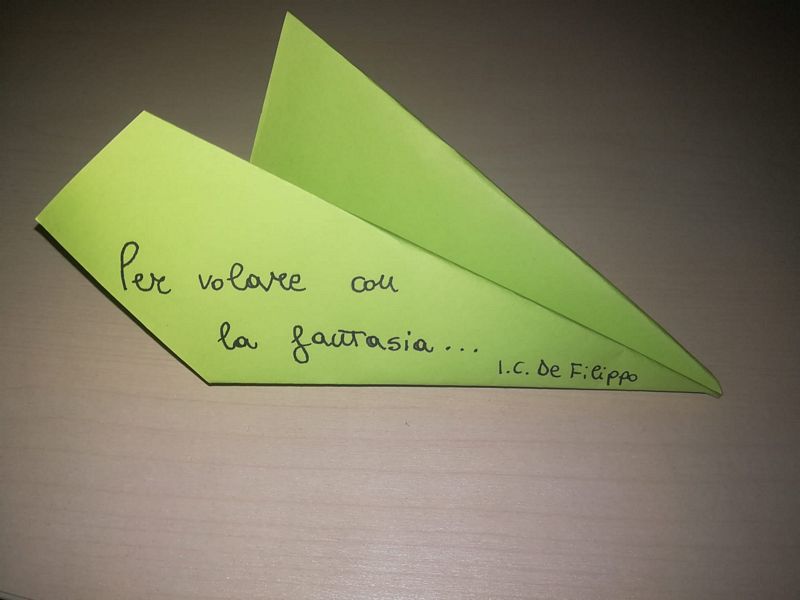 Per volare con
la fantasia...
I.C. De Filippo